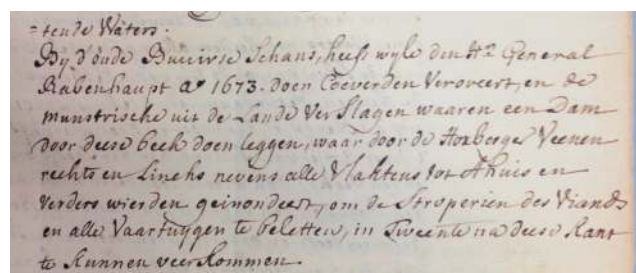 =tende Waters.
Bij d'oude Buuirse Schans, heeft wijle den Hr. General
Rabenhaupt Ao 1673. doen Coeverden Verovert, en de
munstrische uit de Lande Verslagen waaren een Dam
door deese beek doen leggen, waar door de Haxberger Veenen
rechts en Lincks nevens alle Vlaktens tot Ahuis en
Verders wierden geinondeert, om de Stroperien des Viands
en alle Vaartuygen te beletten, in Twente na deese Kant
te kunnen veerkommen.